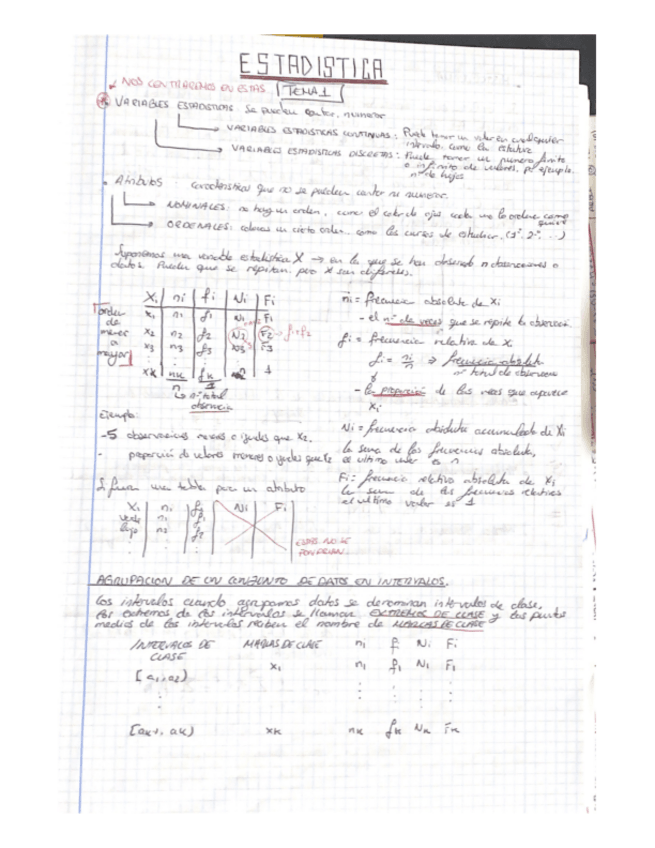 ESTADISTICA
NOS CENTRAREMOS EN ESTAS TEMA 1
VARIABLES ESTADISTICAS Se pueden contar, numerar
VARIABLES ESTADISTICAS CONTINUAS: Puede tomar un valor en cualquier
intervalo. como la estatura
VARIABLES ESTADISTICAS DISCRETAS: Puede tomar un numero finito
o infinito de valores, p. ejemplo.
nº de hijos
Atributos: caracteristicas que no se pueden contar ni numerar.
NOMINALES: no hay un orden, como el color de ojos, cada uno lo ordena como
quiere
ORDENALES: cierto orden, como los cursos de estudiar, (1º, 2º, ...)
Suponemos una variable estadistica X → en la que se han observado n observaciones o
datos. Pueden que se repitan, pero K son diferentes.
Xi ni fi Ni Fi
x1 n1 f1 N1 F1
x2 n2 f2 N2 F2 f1+f2
x3 n3 f3 N3 F3
xk nk fk 1
n 1
orden
de
menor
a
mayor
nº total
observacion
ni = frecuencia absoluta de xi
- el nº de veces que se repite la observacion
fi = frecuencia relativa de xi
fi = ni/n ⇒ frecuencia absoluta
nº total de observacion
- la proporción de las veces que aparece
xi
Ejemplo:
Ni = frecuencia absoluta acumulada de Xi
-5 observaciones menores o iguales que x2.
la suma de las frecuencias absoluta,
- proporción de valores menores o iguales que
el ultimo valor es n
Fi: frecuencia relativa absoluta de xi
la suma de las frecuencias relativas
el ultimo valor es 1
Si fuera una tabla para un atributo
Xi ni fi Ni Fi
verde n1 f1
n2 f2
ESTAS NO SE
PONDRIAN
AGRUPACION DE UN CONJUNTO DE DATOS EN INTERVALOS.
Los intervalos cuando agrupamos datos se denominan intervalos de clase,
los extremos de los intervalos se llaman EXTREMOS DE CLASE y los puntos
medios de los intervalos reciben el nombre de MARCAS DE CLASE
INTERVALOS DE CLASE MARCAS DE CLASE ni f Ni Fi
[a1, a2) x1 n1 f1 N1 F1
[ak-1, ak) xk nk fk Nk Fk